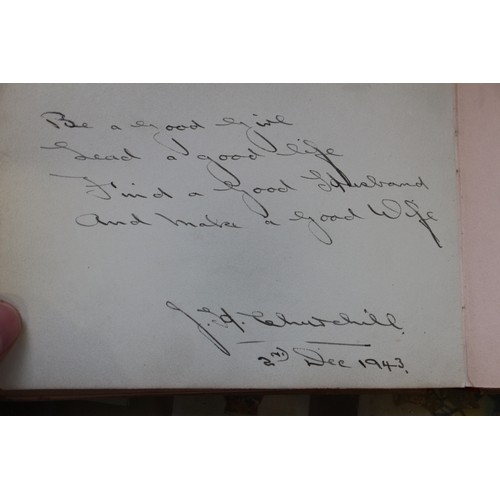 Be a Good Girl
Lead a good life
Find a Good Husband
And make a Good Wife
J. H. Churchill.
2nd Dec 1943.